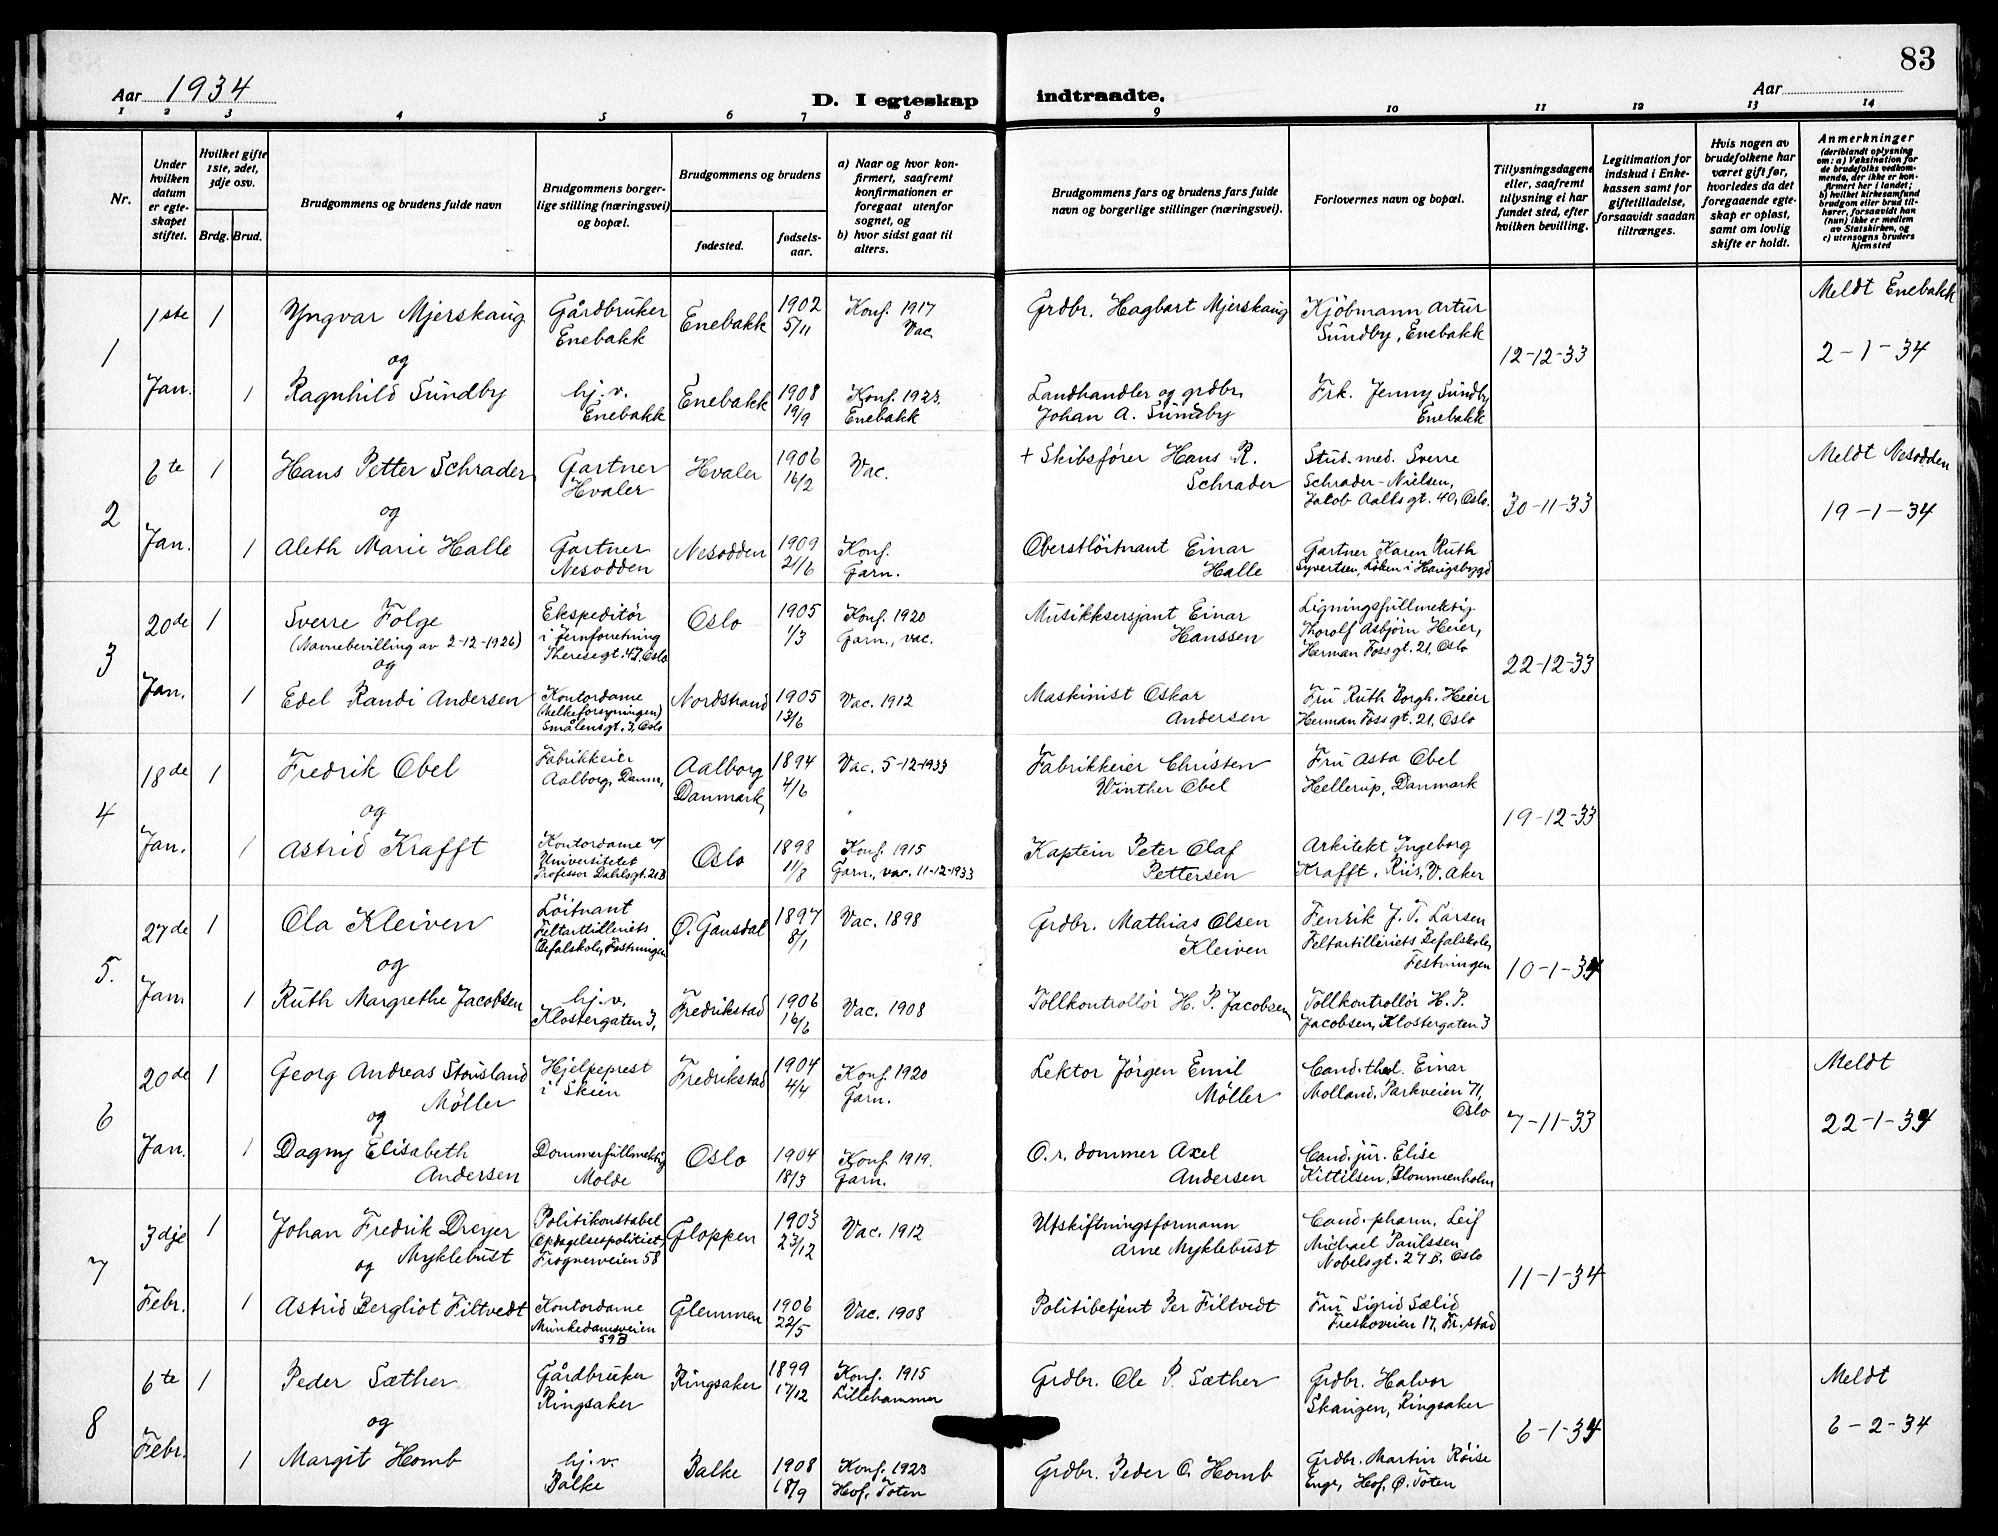 83
Aar 1934
D. I egteskap indtraadte.
Aar
1 2 3 4 5 6 7 8 9 10 11 12 13 14
Nr.
Under hvilken datum er egteskapet stiftet.
Hvilket gifte 1ste, 2det, 3dje osv.
Brdg. Brud.
Brudgommens og brudens fulde navn
Brudgommens borgerlige stilling (næringsvei) og bopæl.
Brudgommens og brudens
fødested.
fødselsaar.
a) Naar og hvor konfirmert, saafremt konfirmationen er foregaat utenfor sognet, og
b) hvor sidst gaat til alters.
Brudgommens fars og brudens fars fulde navn og borgerlige stillinger (næringsvei).
Forlovernes navn og bopæl.
Tillysningsdagene eller, saafremt tillysning ei har fundet sted, efter hvilken bevilling.
Legitimation for indskud i Enkekassen samt for giftetilladelse, forsaavidt saadan tiltrænges.
Hvis nogen av brudefolkene har været gift før, hvorledes da det foregaaende egteskap er opløst, samt om lovlig skifte er holdt.
Anmerkninger
(deriblandt oplysning om: a) Vaksination for de brudefolks vedkommende, der ikke er konfirmert her i landet; b) hvilket kirkesamfund brudgom eller brud tilhører, forsaavidt han (hun) ikke er medlem av Statskirken, og c) utensogns bruders hjemsted
1
1ste Jan.
1
Yngvar Mjerskaug
Gårdbruker
Enebakk
Enebakk
1902
5/11
Konf. 1917
Vac.
Grdbr. Hagbart Mjerskaug
Kjöbmann Artur
Sundby, Enebakk
12-12-33
Meldt Enebakk
2-1-34
og
1
Ragnhild Sundby
hj. v.
Enebakk
Enebakk
1908
19/9
Konf. 1923.
Enebakk
Landhandler og grdbr.
Johan A. Sundby
Frk. Jenny Sundby
Enebakk
2
6te Jan.
1
Hans Petter Schrader
Gartner
Hvaler
Hvaler
1906
16/2
Vac.
+ Skibsfører Hans R.
Schrader
Stud. med. Sverre
Schrader-Nielsen,
Jacob Aallsgt. 40, Oslo.
30-11-33
Meldt Nesodden
19-1-34
og
1
Aleth Marie Halle
Gartner
Nesodden
Nesodden
1909
21/6
Konf.
Garn.
Oberstlöitnant Einar
Halle
Gartner Karen Ruth
Syvertsen, Löken i Høigsbygd
3
20de Jan.
1
Sverre Folge
(Navnebevilling av 2-12-1926)
Ekspeditör
i Jernforretning
Theresegt. 47, Oslo
Oslo
1905
1/3
Konf. 1920
Garn., vac.
Musikksersjant Einar
Hanssen
Ligningsfullmektig
Thorolf Asbjörn Heier,
Herman Fossgt. 21, Oslo
22-12-33
og
1
Edel Randi Andersen
Kontordame
(Melkeforsyningen)
Smålensgt. 3, Oslo
Nordstrand
1905
13/6
Vac. 1912
Maskinist Oskar
Andersen
Fru Ruth Borgh. Heier
Herman Fossgt. 21, Oslo
4
18de Jan.
1
Fredrik Obel
Fabrikkeier
Aalborg, Danm,
Aalborg
Danmark,
1894
4/6
Vac. 5-12-1933
Fabrikkeier Christen
Winther Obel
Fru Asta Obel
Hellerup, Danmark
19-12-33
og
1
Astrid Krafft
Kontordame v/
Universitetet
Professor Dahlsgt. 21B
Oslo
1898
11/8
Konf. 1915
Garn., vac. 11-12-1933
Kaptein Peter Olaf
Pettersen
Arkitekt Ingeborg
Krafft, Riis, V. Aker
5.
27de Jan.
1
Ola Kleiven
Löitnant
Feltartilleriets
Befalskole, Festningen
Ø. Gausdal
1897
8/1
Vac. 1898
Grdbr. Mathias Olsen
Kleiven
Fenrik J. T. Larsen
Feltartilleriets Befalskole,
Festningen
10-1-34
og
1
Ruth Margrethe Jacobsen
hj. v.
Klostergaten 3,
Fredrikstad
1906
16/6
Vac. 1908
Tollkontrollör H. P. Jacobsen
Tollkontrollör H. P.
Jacobsen, Klostergaten 3
6
20de Jan.
1
Georg Andreas Stousland
Möller
Hjelpeprest
i Skien
Fredrikstad
1904
4/4
Konf. 1920
Garn.
Lektor Jörgen Emil
Möller
Cand. theol. Einar
Molland, Parkveien 71,
Oslo
7-11-33
Meldt
22-1-34
og
1
Dagny Elisabeth
Andersen
Dommerfullmektig
Molde
Oslo
1904
18/3
Konf. 1919.
Garn.
O.r. dommer Axel
Andersen
Cand. jur. Elise
Kittilsen, Blommenholm
7
3dje Febr.
1
Johan Fredrik Dreyer
Myklebust
Politikonstabel
(Opdagelsespolitiet)
Frognerveien 58
Gloppen
1903
23/12
Vac. 1912
Utskiftningsformann
Arne Myklebust
Cand. pharm. Leif
Michael Paulssen
Nobelsgt. 27B, Oslo
11-1-34
og
1
Astrid Bergliot Filtvedt
Kontordame
Munkedamsveien
59B
Glemmen
1906
22/5
Vac. 1908
Politibetjent Per Filtvedt
Fru Sigrid Sælid
Freskoveien 17, Fr.stad
8
6te Febr.
1
Peder Sæther
Gårdbruker
Ringsaker
Ringsaker
1899
17/12
Konf. 1915
Lillehammer
Grdbr. Ole P. Sæther
Grdbr. Halvor
Skaugen, Ringsaker
6-1-34
Meldt
6-2-34
og
1
Margit Homb
hj. v.
Balke
Balke
1908
18/9
Konf. 1923
Hof, Toten
Grdbr. Peder O. Homb
Grdbr. Martin Röise
Enge, Hof, Ø. Toten